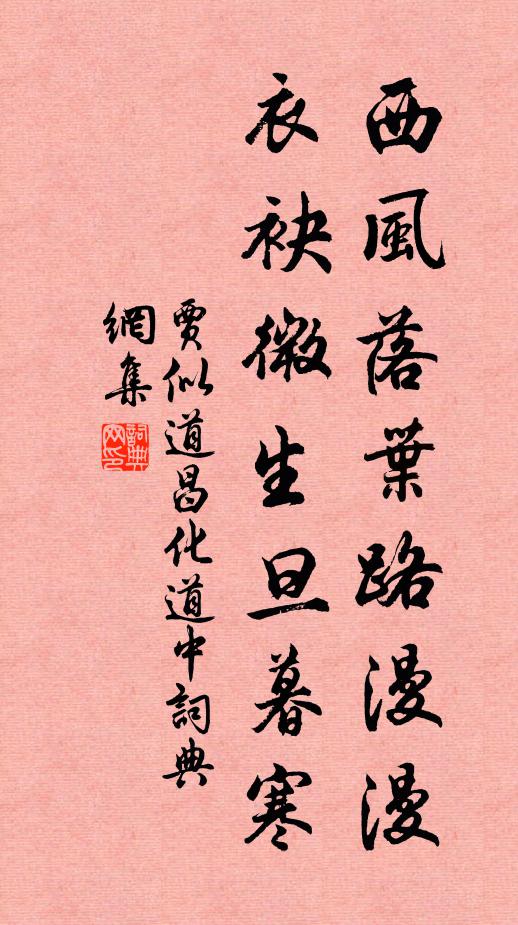 西風落葉路漫漫
衣袂微生旦暮寒
賈似道昌化道中詞典
網集
詞典
网印